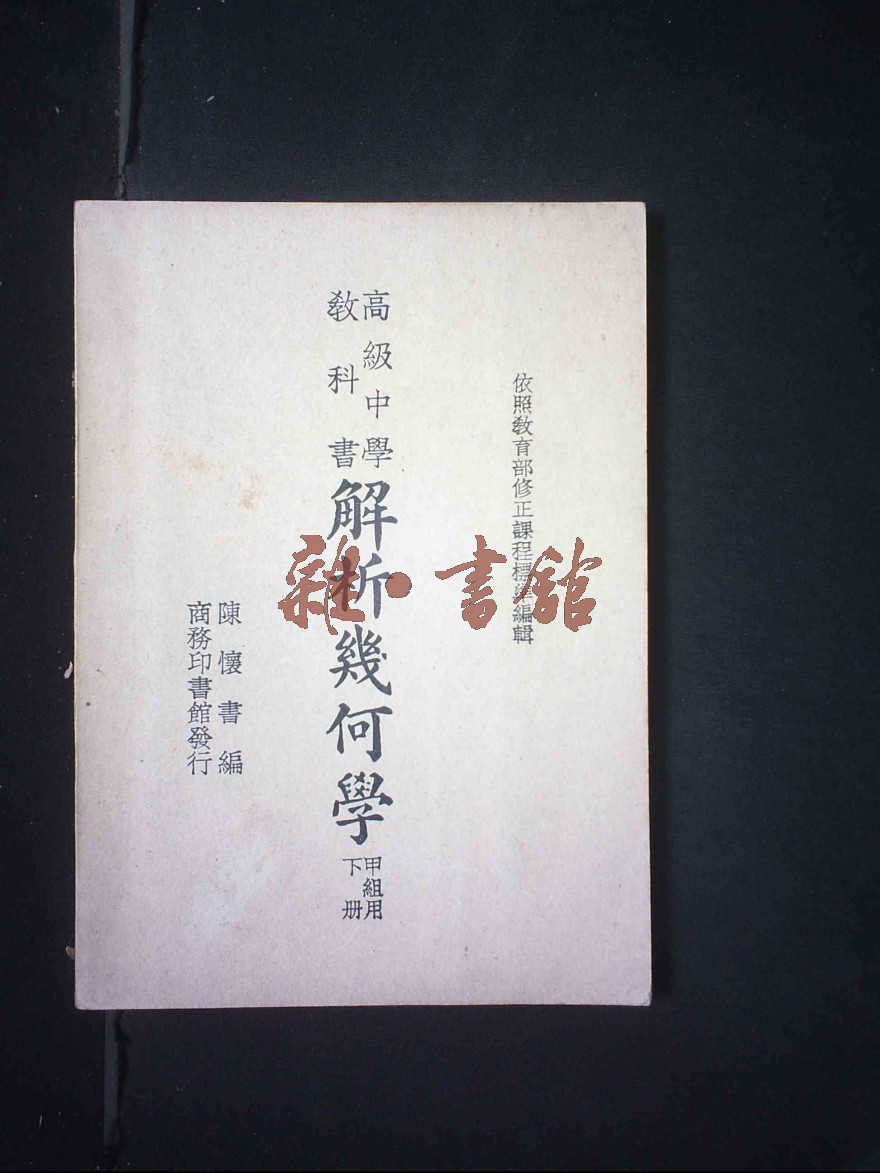 依照教育部修正課程標準編輯
高級中學
教科書
解析幾何學
甲組用
下册
陳懷書編
商務印書館發行
雜·書館